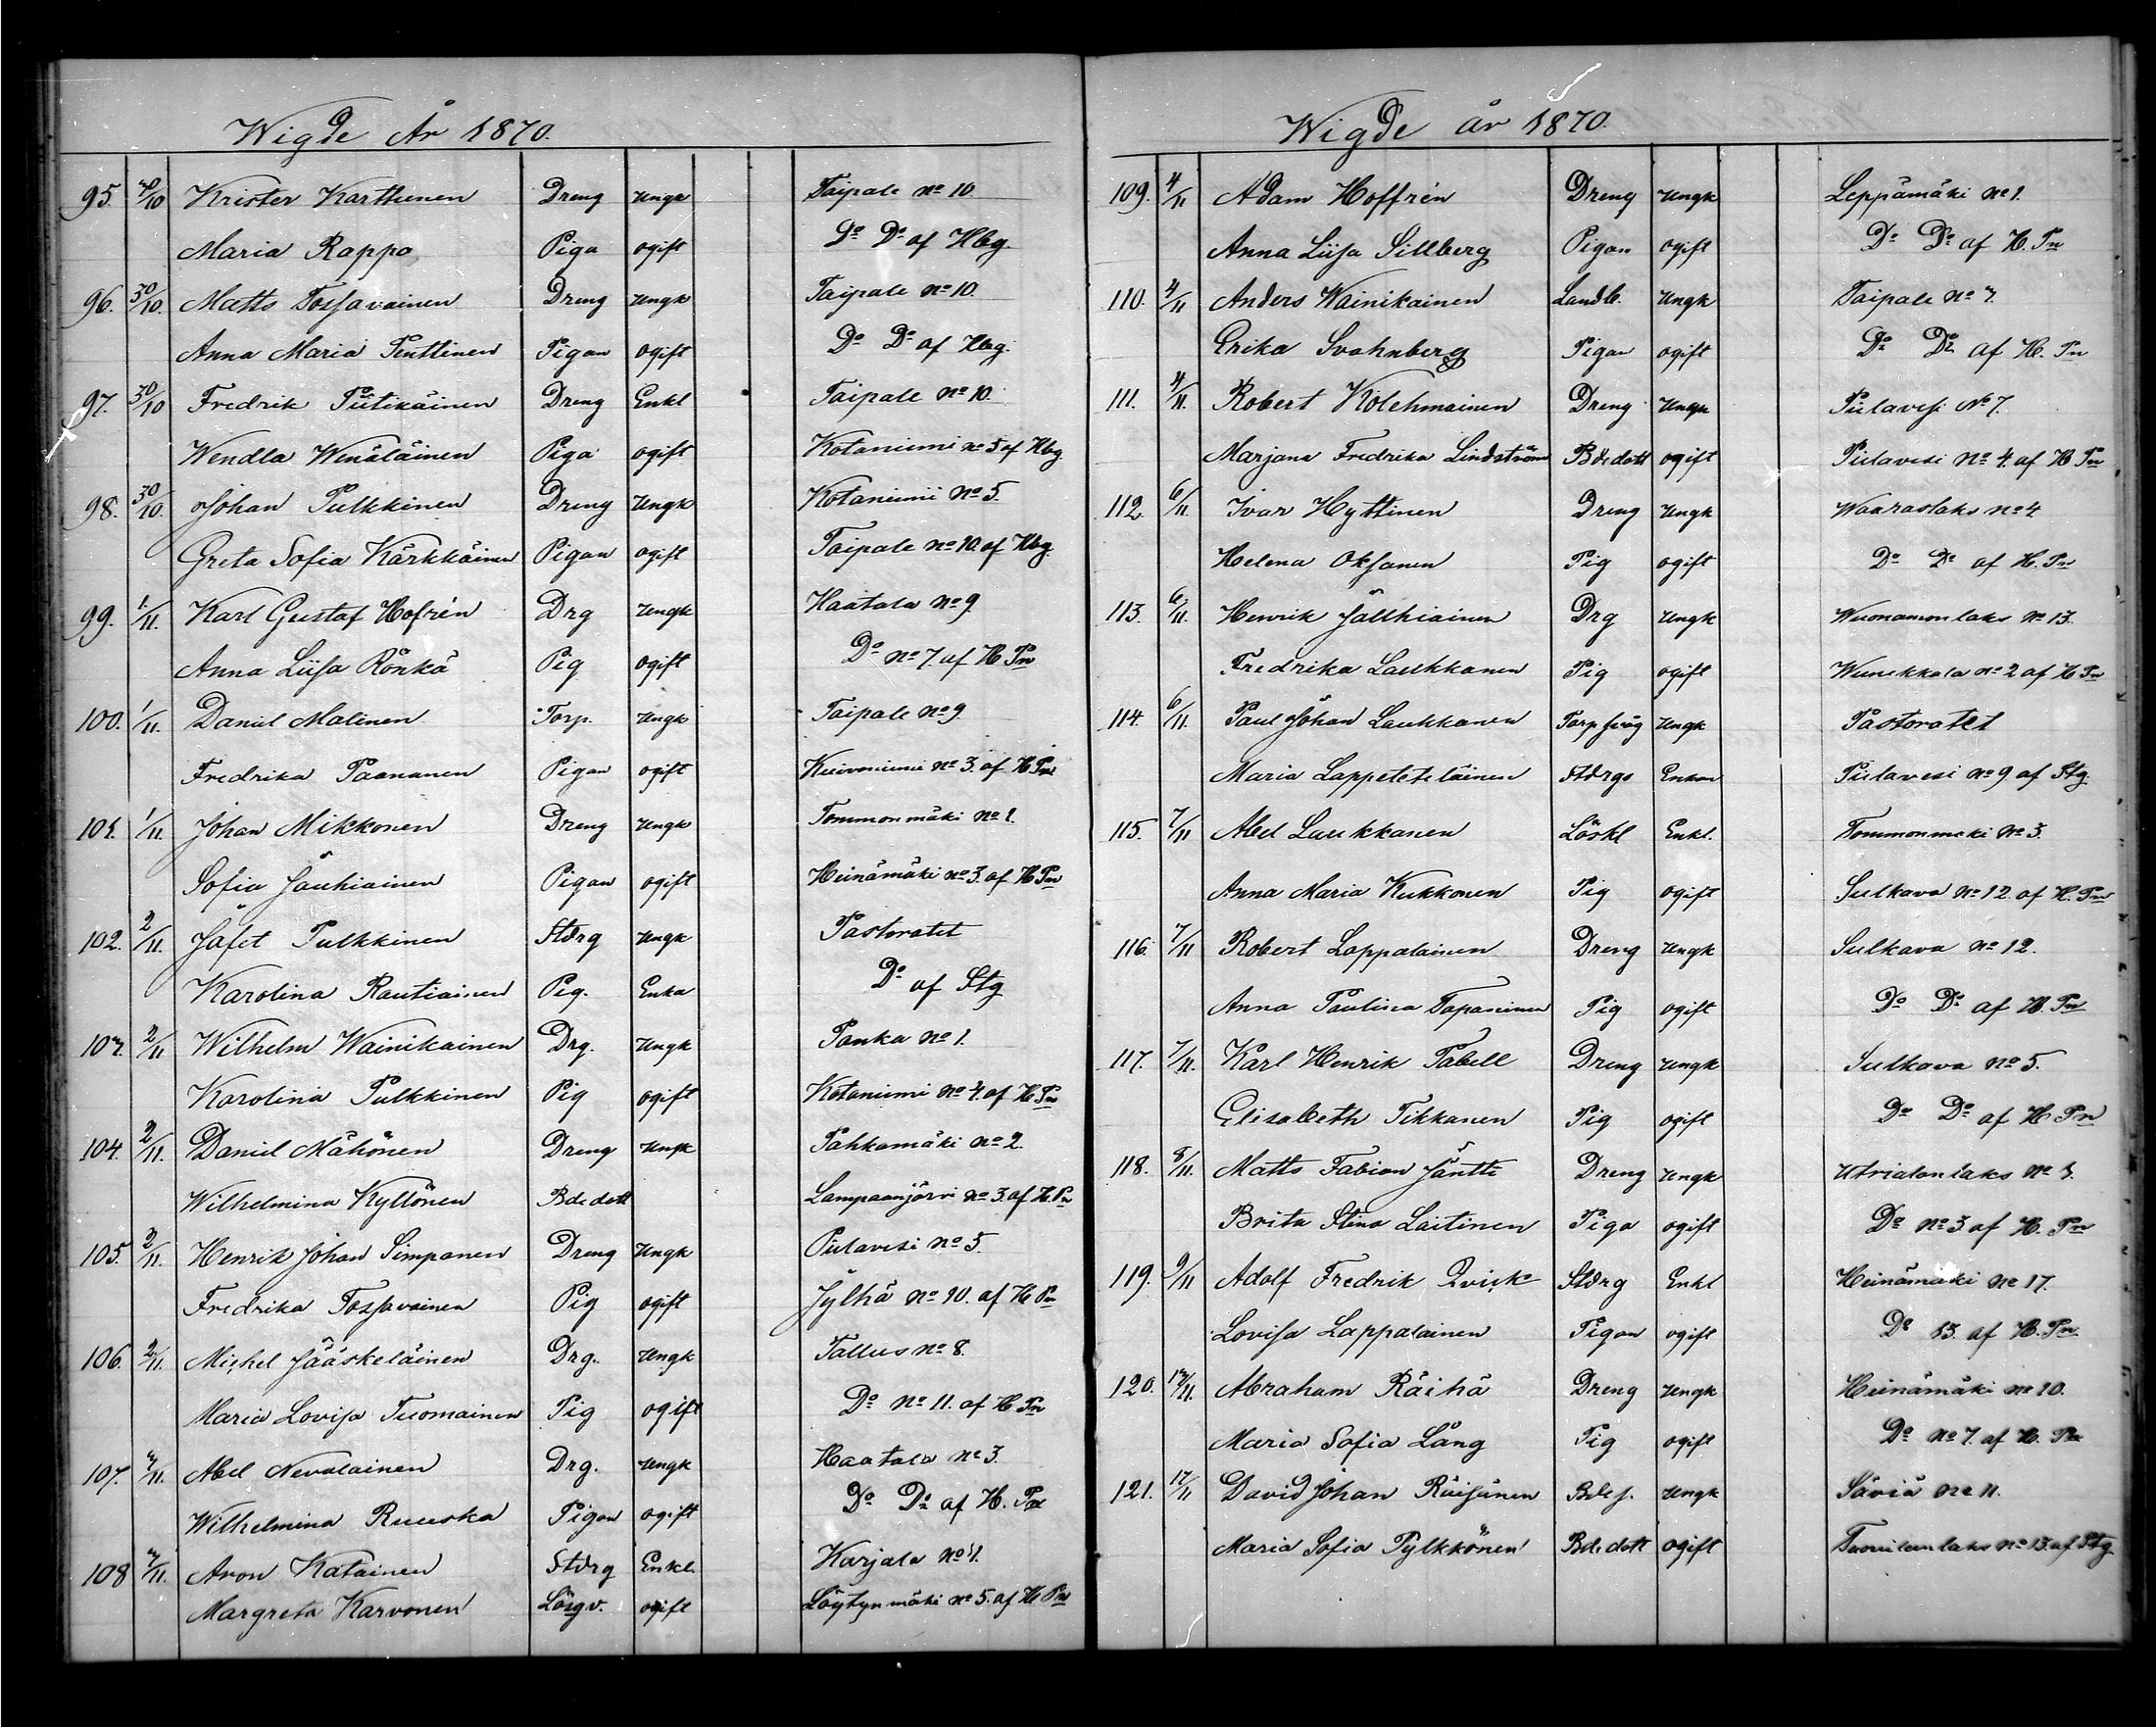 Wigde År 1870.
95. 30/10 Krister Karttunen Dreng Ungk Taipale no 10.
Maria Rappo Piga ogift Do Do af Hbg.
96. 30/10. Matts Tossavainen Dreng Ungk Taipale no 10.
Anna Maria Penttinen Pigan ogift Do Do af Hbg.
97. 30/10 Fredrik Piitikäinen Dreng Enkl Taipale no 10
Wendla Wenäläinen Piga ogift Kotaniemi no 5 af Hbg.
98. 30/10. Johan Pulkkinen Dreng Ungk Kotaniemi no 5.
Greta Sofia Kärkkäinen Pigan ogift Taipale no 10. af Hbg.
99. 1/11. Karl Gustaf Hofrén Drg Ungk Haatala no 9
Anna Liisa Rönkä Pig ogift Do no 7 af H Pn
100. 1/11. Daniel Malinen Torp. Ungk Taipale no 9.
Fredrika Paananen Pigan ogift Kuivaniemi no 3. af H Pn
101. 1/11. Johan Mikkonen Dreng Ungk Tommonmäki no 1.
Sofia Jauhiainen Pigan ogift Heinämäki no 3. af H Pn
102. 2/11. Jafet Pulkkinen Stdrg Ungk Pastoratet
Karolina Rautiainen Pig. Enka Do af Stg
103. 2/11 Wilhelm Wainikainen Drg. Ungk Panka no 1.
Karolina Pulkkinen Pig ogift Kotaniemi no 4. af H Pn
104. 2/11. Daniel Mähönen Dreng Ungk Pahkamäki no 2.
Wilhelmina Kyllönen Bdedott Lampaanjärvi no 3. af H. Pn
105. 2/11. Henrik Johan Simpanen Dreng Ungk Pielavesi no 5.
Fredrika Tossavainen Pig ogift Jylhä no 10. af H Pn
106. 2/11. Michel Jääskeläinen Drg. Ungk Tallus no 8.
Maria Lovisa Tuomainen Pig ogift Do no 11. af H Pn
107. 3/11. Abel Nevalainen Drg. Ungk Haatala no 3.
Wilhelmina Ruuska Pigan ogift Do Do af H. Pn
108 3/11. Aron Katainen Stdrg Enkl. Karjala no 1.
Margreta Karvonen Lösgv. ogift Löytynmäki no 5. af H Pn
Wigde år 1870.
109. 4/11 Adam Hoffrén Dreng Ungk Leppämäki no 1.
Anna Liisa Sillberg Pigan ogift Do Do af H. Pn
110. 4/11 Anders Wainikainen Landb. Ungk Taipale no 3.
Erika Svahnberg Pigan ogift Do Do af H. Pn
111. 4/11. Robert Kolehmainen Dreng Ungk Pielavesi No 7.
Marjana Fredrika Lindström Bdedott ogift Pielavesi no 4. af H Pn
112. 6/11. Ivar Hyttinen Dreng Ungk Waaraslaks no 4
Helena Oksanen Pig ogift Do Do af H. Pn
113. 6/11. Henrik Jälkiäinen Drg Ungk Wuonamonlaks no 13.
Fredrika Laukkanen Pig ogift no 2 af H Pn
114. 6/11. Paul Johan Laukkanen Ungk Pastoratet
Maria Lappeteteläinen Stdrgs Enkan Pielavesi no 9 af Stg.
115. 7/11 Abel Laukkanen Löskl Enkl. Tommonmäki no 3.
Anna Maria Kukkonen Pig ogift Sulkava no 12. af H. Pn
116. 7/11 Robert Lappalainen Dreng Ungk Sulkava no 12.
Anna Paulina Tapaninen Pig ogift Do Do af H. Pn
117. 7/11. Karl Henrik Tabell Dreng Ungk Sulkava no 5.
Elisabeth Tikkanen Pig ogift Do Do af H. Pn
118. 8/11. Matts Fabian Jäntti Dreng Ungk Utrialanlaks no 1.
Brita Stina Laitinen Piga ogift Do no 3 af H. Pn
119. 9/11 Adolf Fredrik Qvick Stdrg Enkl Heinämäki no 17.
Lovisa Lappalainen Pigan ogift Do 15. af H. Pn
120. 13/11. Abraham Räihä Dreng Ungk Heinämäki no 10.
Maria Sofia Lång Pig ogift Do no 7. af H. Pn
121. 17/11 David Johan Räisänen Bdes. Ungk Säviä no 11.
Maria Sofia Pylkkönen Bdedott ogift no 15. af Stg